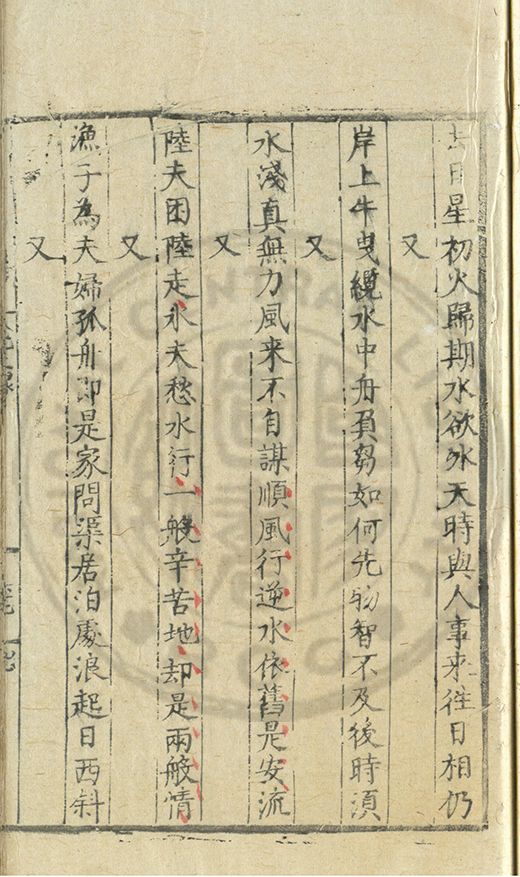 日星初火歸期水欲氷天時與人事來往日相仍
又
岸上牛曳纜水中舟負芻如何先物智不及後時須
又
水淺真無力風来不自謀順風行逆水依舊是安流
又
陸夫困陸走水夫愁水行一般辛苦地却是兩般情
又
漁子為夫婦孤舟即是家問渠居泊處浪起日西斜
又